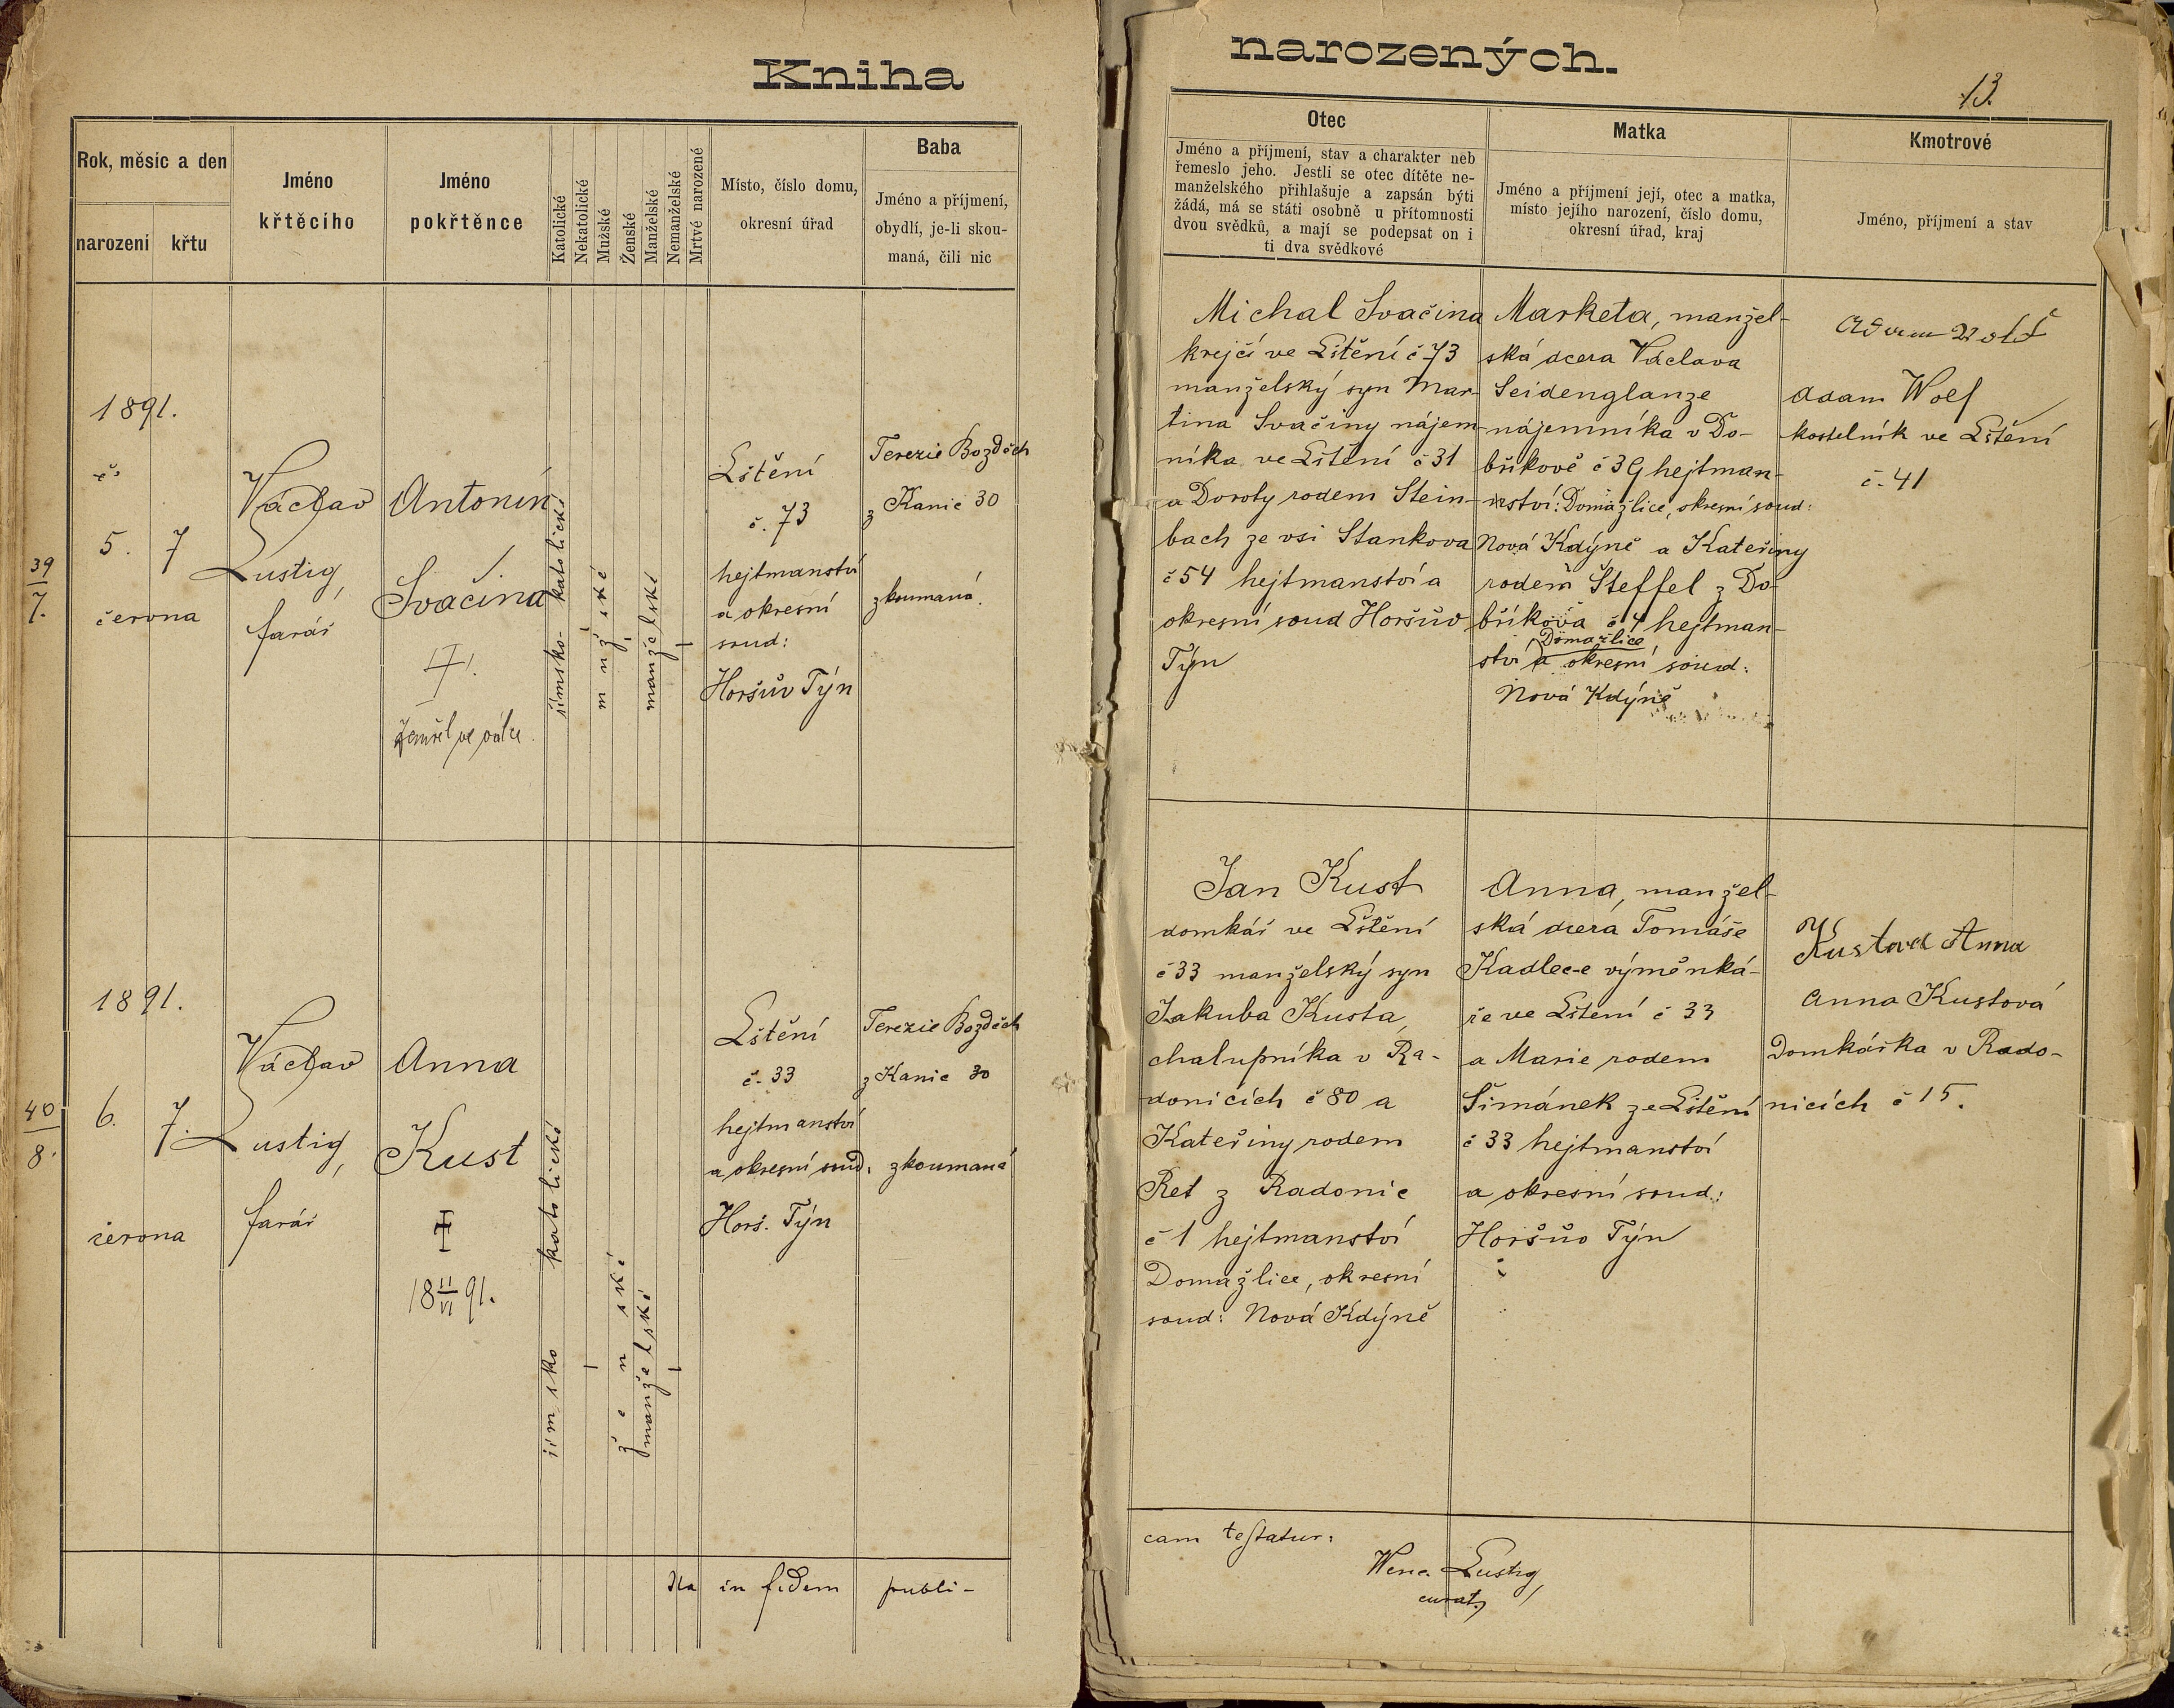 Kniha
Rok, měsíc a den
narození
křtu
Jméno
křtěcího
Jméno
pokřtěnce
Katolické
Nekatolické
Mužské
Ženské
Manželské
Nemanželské
Mrtvě narozené
Místo, číslo domu,
okresní úřad
Baba
Jméno a příjmení,
obydlí, je-li skou-
maná, čili nic
39
7.
1891.
5. 7
června
Václav
Lustig,
farář
Antonín
Svačina
Zemřel ve válce.
římsko-katolické
mužské
manželské
Lštění
č. 73
hejtmanství
a okresní
soud:
Horšův Týn
Terezie Bozděch
z Kanic 30
zkoumaná.
40
8.
1891.
6. 7.
června
Václav
Lustig,
farář
Anna
Kust
18 11/VI 91.
římsko katolické
ženské
manželské
Lštění
č. 33
hejtmanství
a okresní soud:
Horš. Týn
Terezie Bozděch
z Kanic 30
zkoumaná
Ita in fidem publi-
narozených.
13.
Otec
Jméno a příjmení, stav a charakter neb
řemeslo jeho. Jestli se otec dítěte ne-
manželského přihlašuje a zapsán býti
žádá, má se státi osobně u přítomnosti
dvou svědků, a mají se podepsat on i
ti dva svědkové
Matka
Jméno a příjmení její, otec a matka,
místo jejího narození, číslo domu,
okresní úřad, kraj
Kmotrové
Jméno, příjmení a stav
Michal Svačina
krejčí ve Lštění č 73
manželský syn Mar-
tina Svačiny nájem-
níka ve Lštění č 31
a Doroty rodem Stein-
bach ze vsi Stankova
č 54 hejtmanství a
okresní soud Horšův
Týn
Marketa, manžel-
ská dcera Václava
Seidenglanze
nájemníka v Do-
bříkově č 39 hejtman-
ství: Domažlice, okresní soud:
Nová Kdýně a Kateřiny
rodem Šteffel z Do-
bříkova č 4 hejtman-
ství Domažlice
a okresní soud:
Nová Kdýně
Adam Wolf
kostelník ve Lštění
č. 41
Jan Kust
domkář ve Lštění
č 33 manželský syn
Jakuba Kusta
chalupníka v Ra-
donicích č 80 a
Kateřiny rodem
Ret z Radonic
č 1 hejtmanství
Domažlice, okresní
soud: Nová Kdýně
Anna, manžel-
ská dcera Tomáše
Kadlec-e výměnká-
ře ve Lštění č 33
a Marie rodem
Šimánek ze Lštění
č 33 hejtmanství
a okresní soud:
Horšův Týn
Kustová Anna
Anna Kustová
Domkářka v Rado-
nicích č 15.
cam testatur:
Wenc. Lustig,
curat.